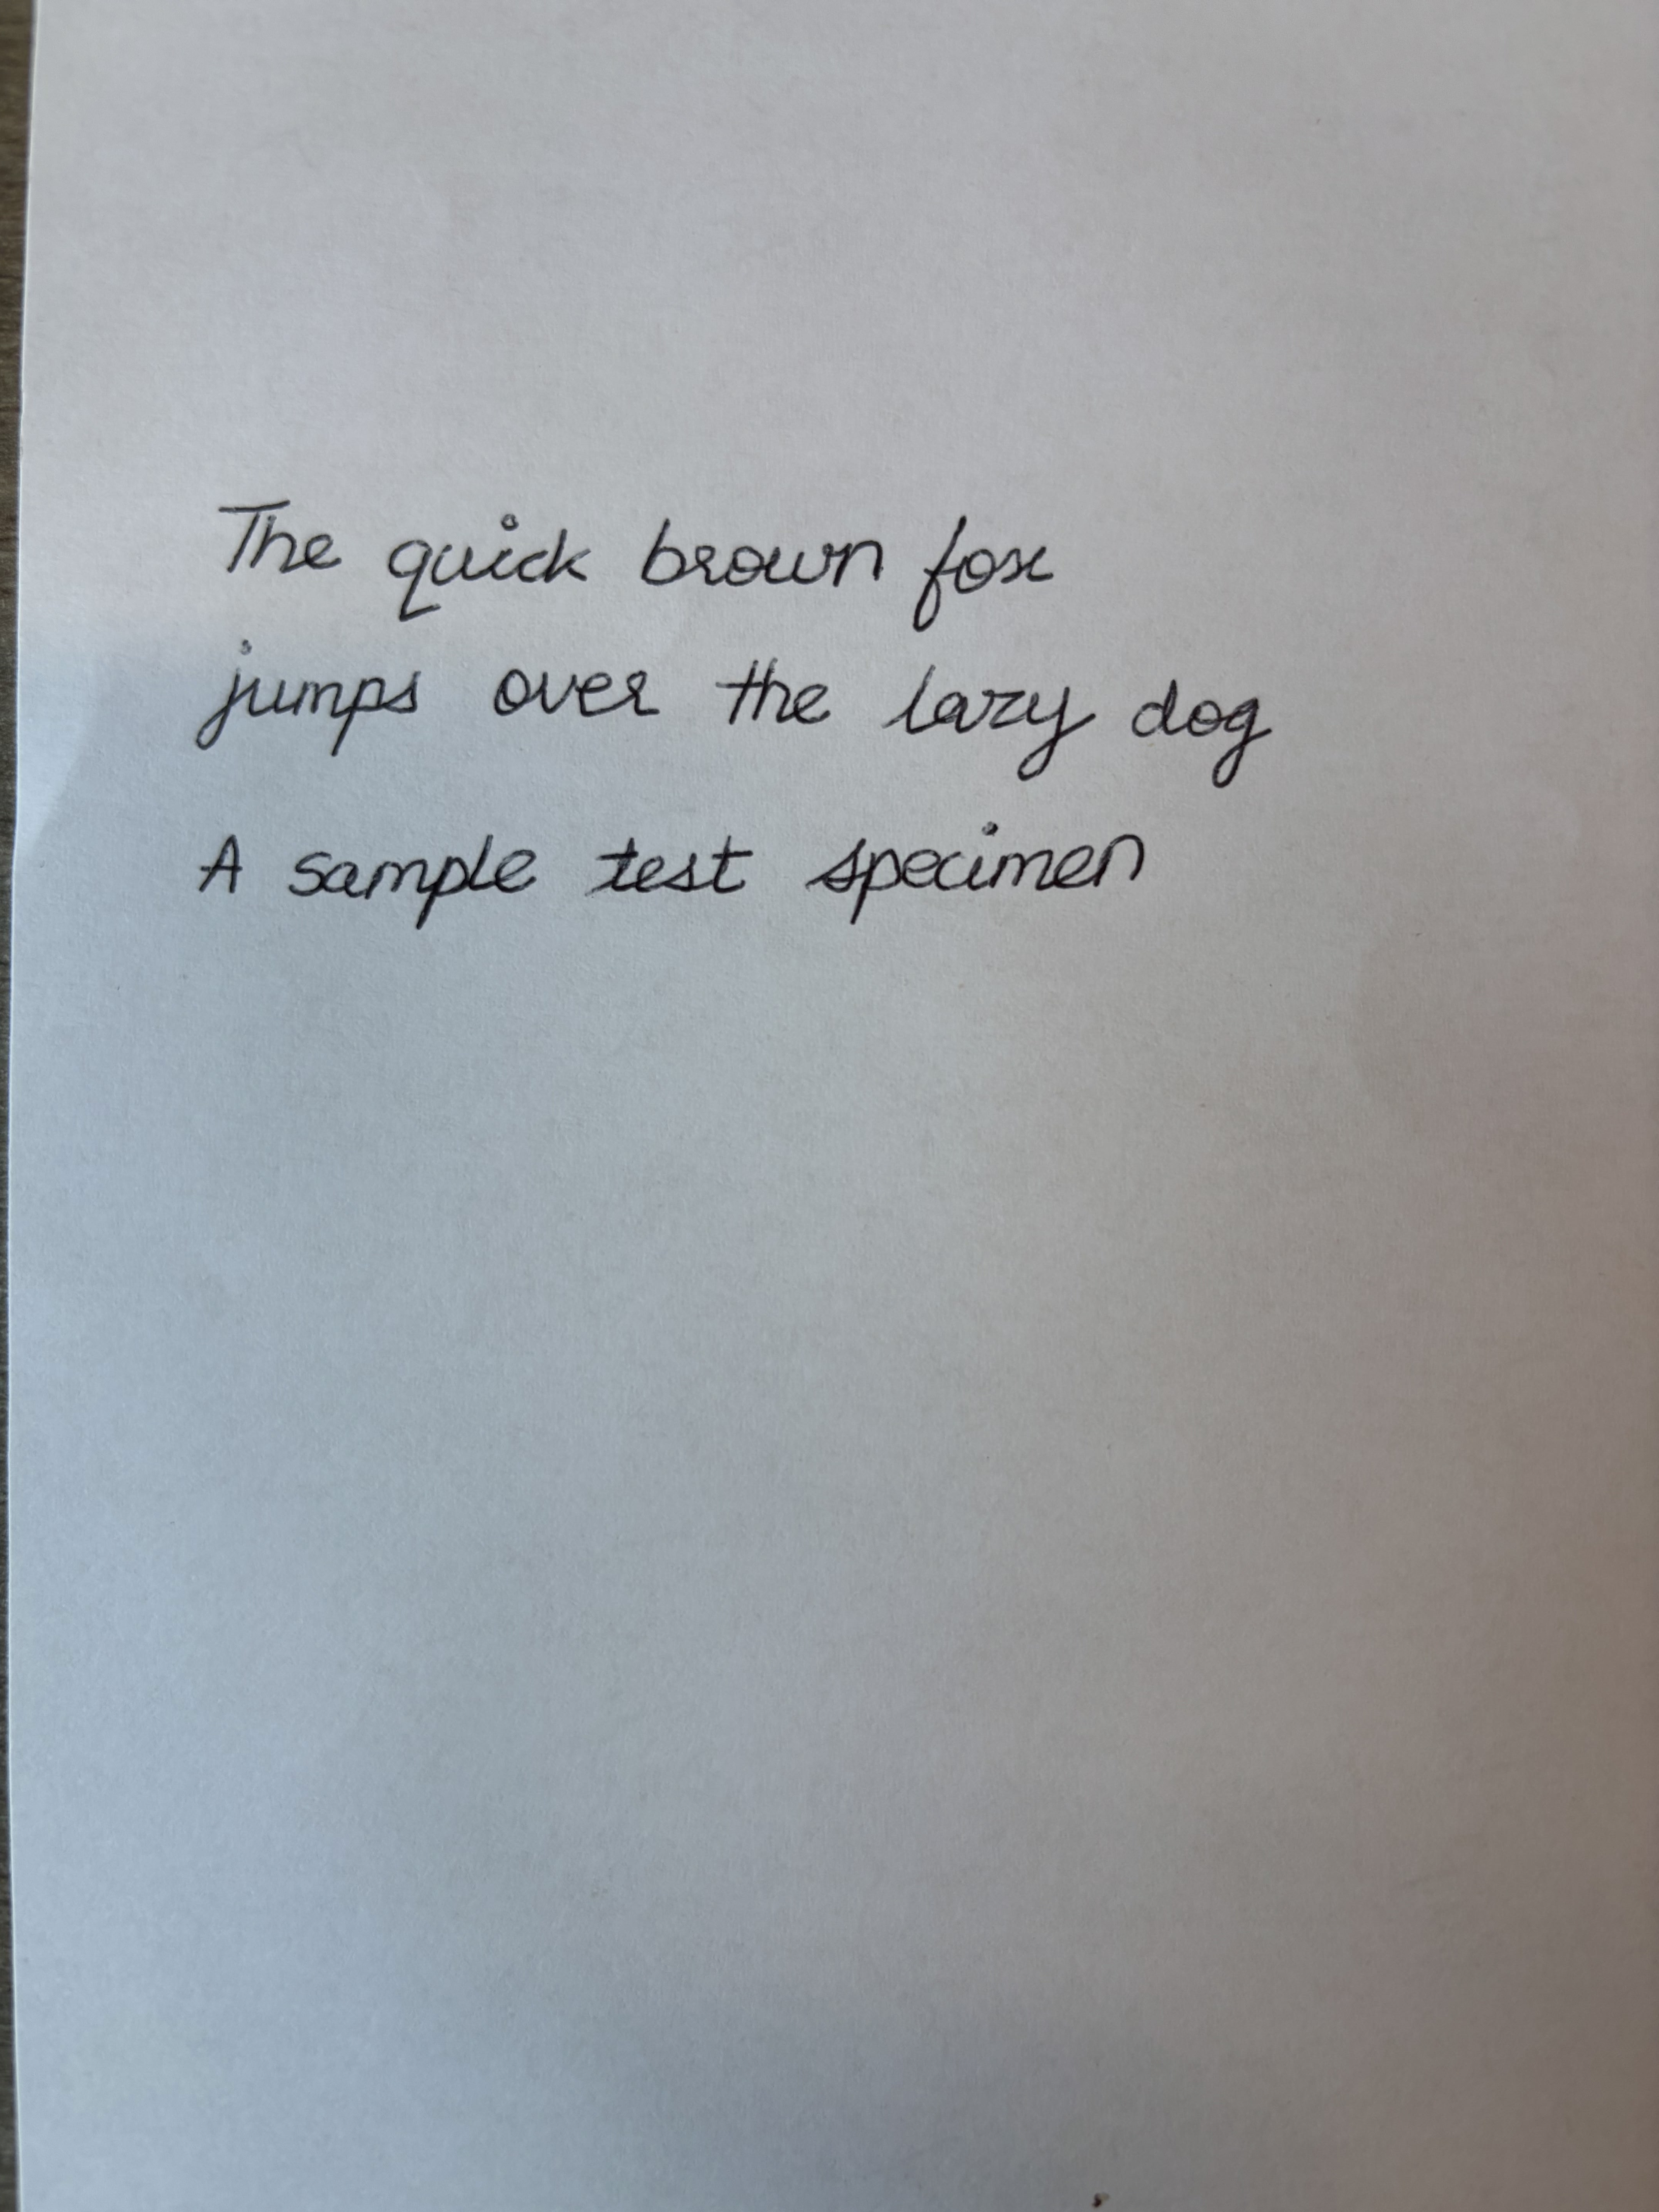 The quick brown fox
jumps over the lazy dog
A sample test specimen